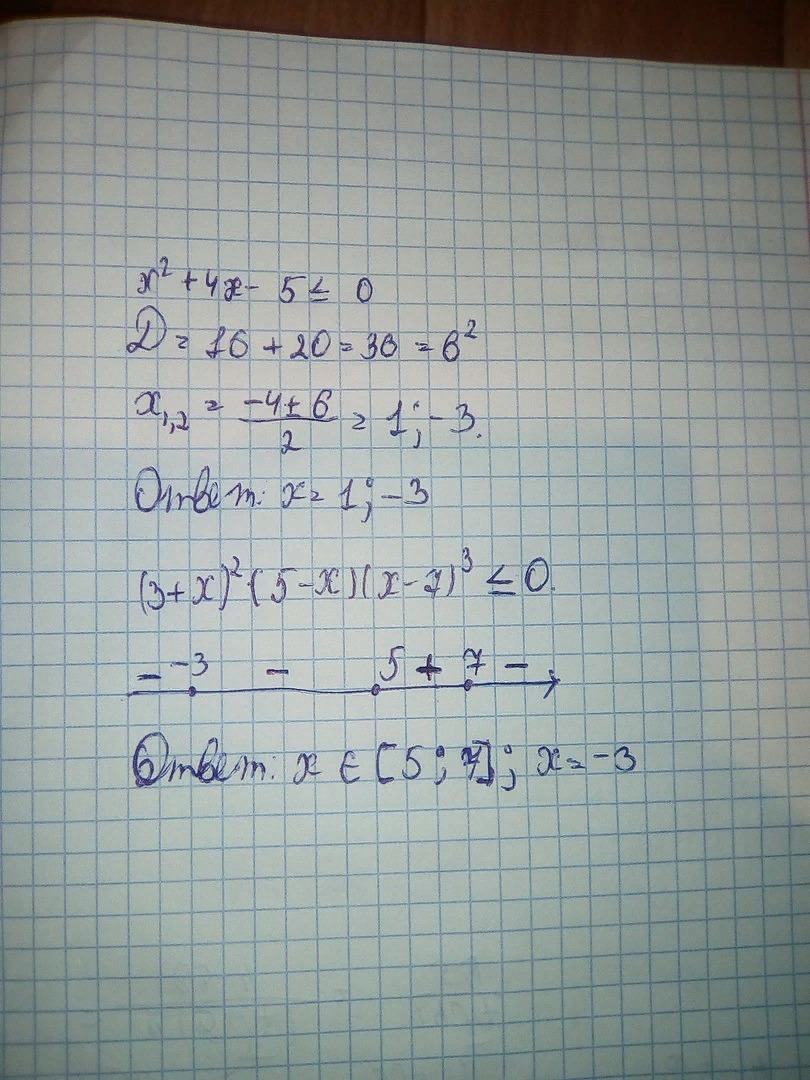 x² + 4x - 5 ≤ 0
D = 16 + 20 = 36 = 6²
x₁,₂ = (-4 ± 6)/2 = 1; -3.
Ответ: x = 1; -3
(3+x)² (5-x)(x-7)³ ≤ 0.
- -3 - 5 + 7 -
Ответ: x ∈ [5; 7]; x = -3